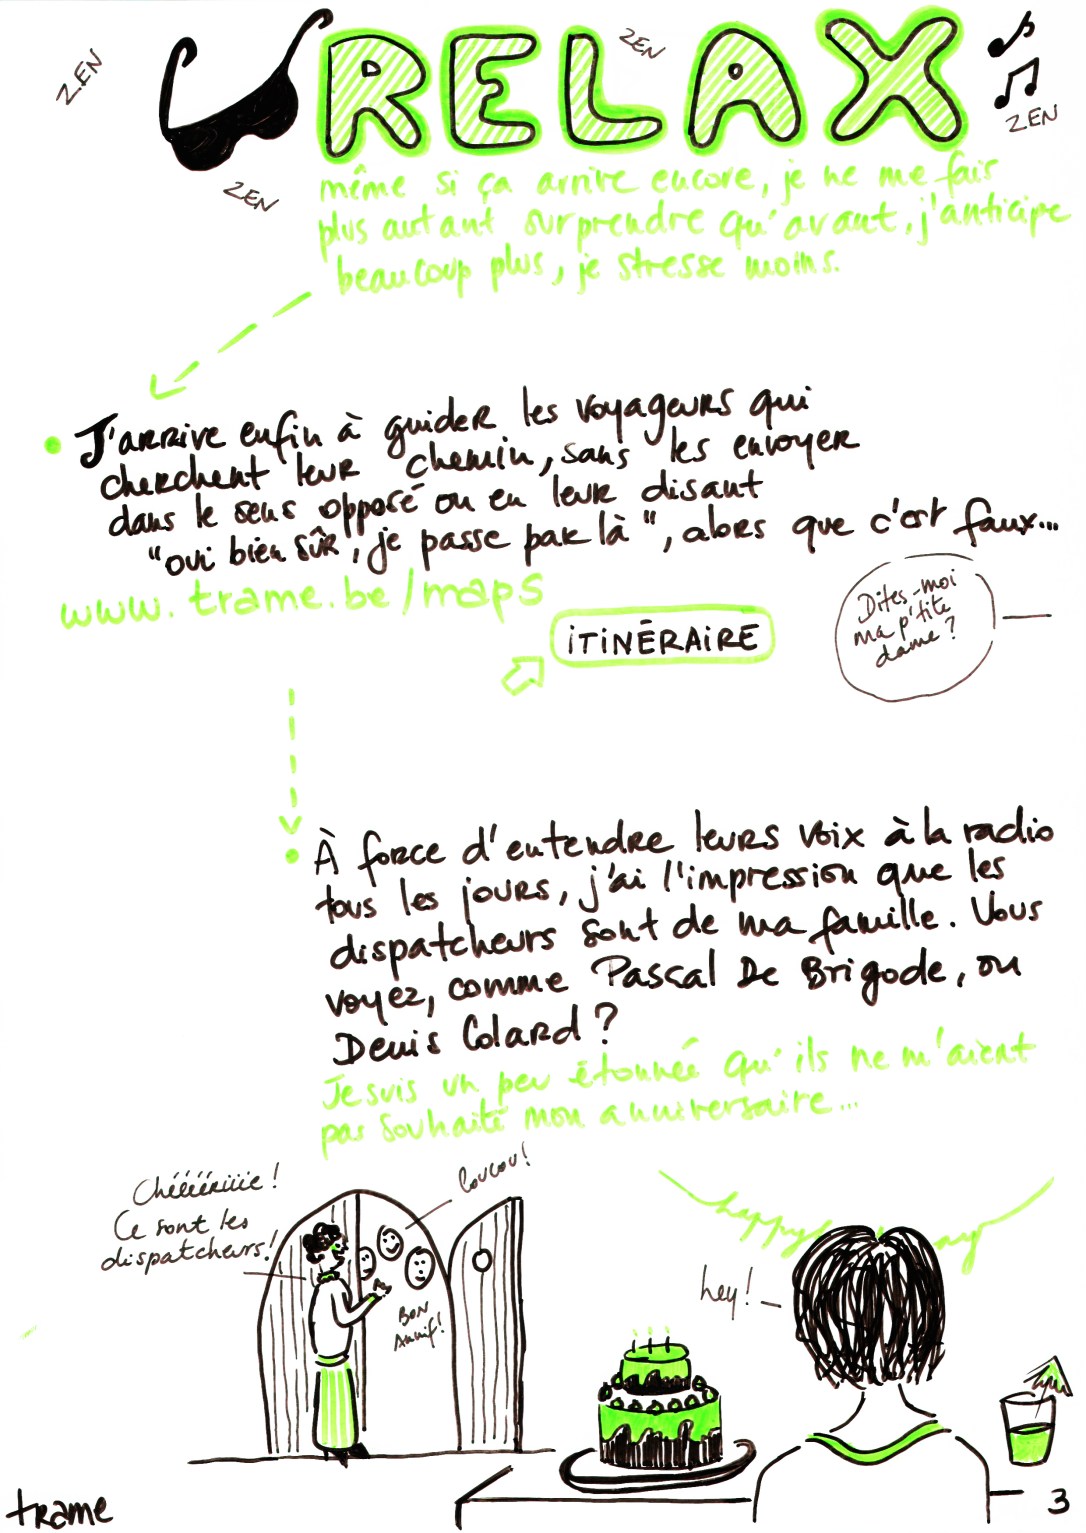 ZEN
RELAX
ZEN
ZEN
ZEN
même si ça arrive encore, je ne me fais
plus autant surprendre qu'avant, j'anticipe
beaucoup plus, je stresse moins.
• J'arrive enfin à guider les voyageurs qui
cherchent leur chemin, sans les envoyer
dans le sens opposé ou en leur disant
"oui bien sûr, je passe par là", alors que c'est faux...
www.trame.be/maps
ITINÉRAIRE
Dites-moi
ma p'tite
dame?
• À force d'entendre leurs voix à la radio
tous les jours, j'ai l'impression que les
dispatcheurs sont de ma famille. Vous
voyez, comme Pascal De Brigode, ou
Denis Colard?
Je suis un peu étonnée qu'ils ne m'aient
pas souhaité mon anniversaire...
Chéééériiiie!
Ce sont les
dispatcheurs!
Coucou!
BON
Annif!
happy
ay
hey!
trame
3